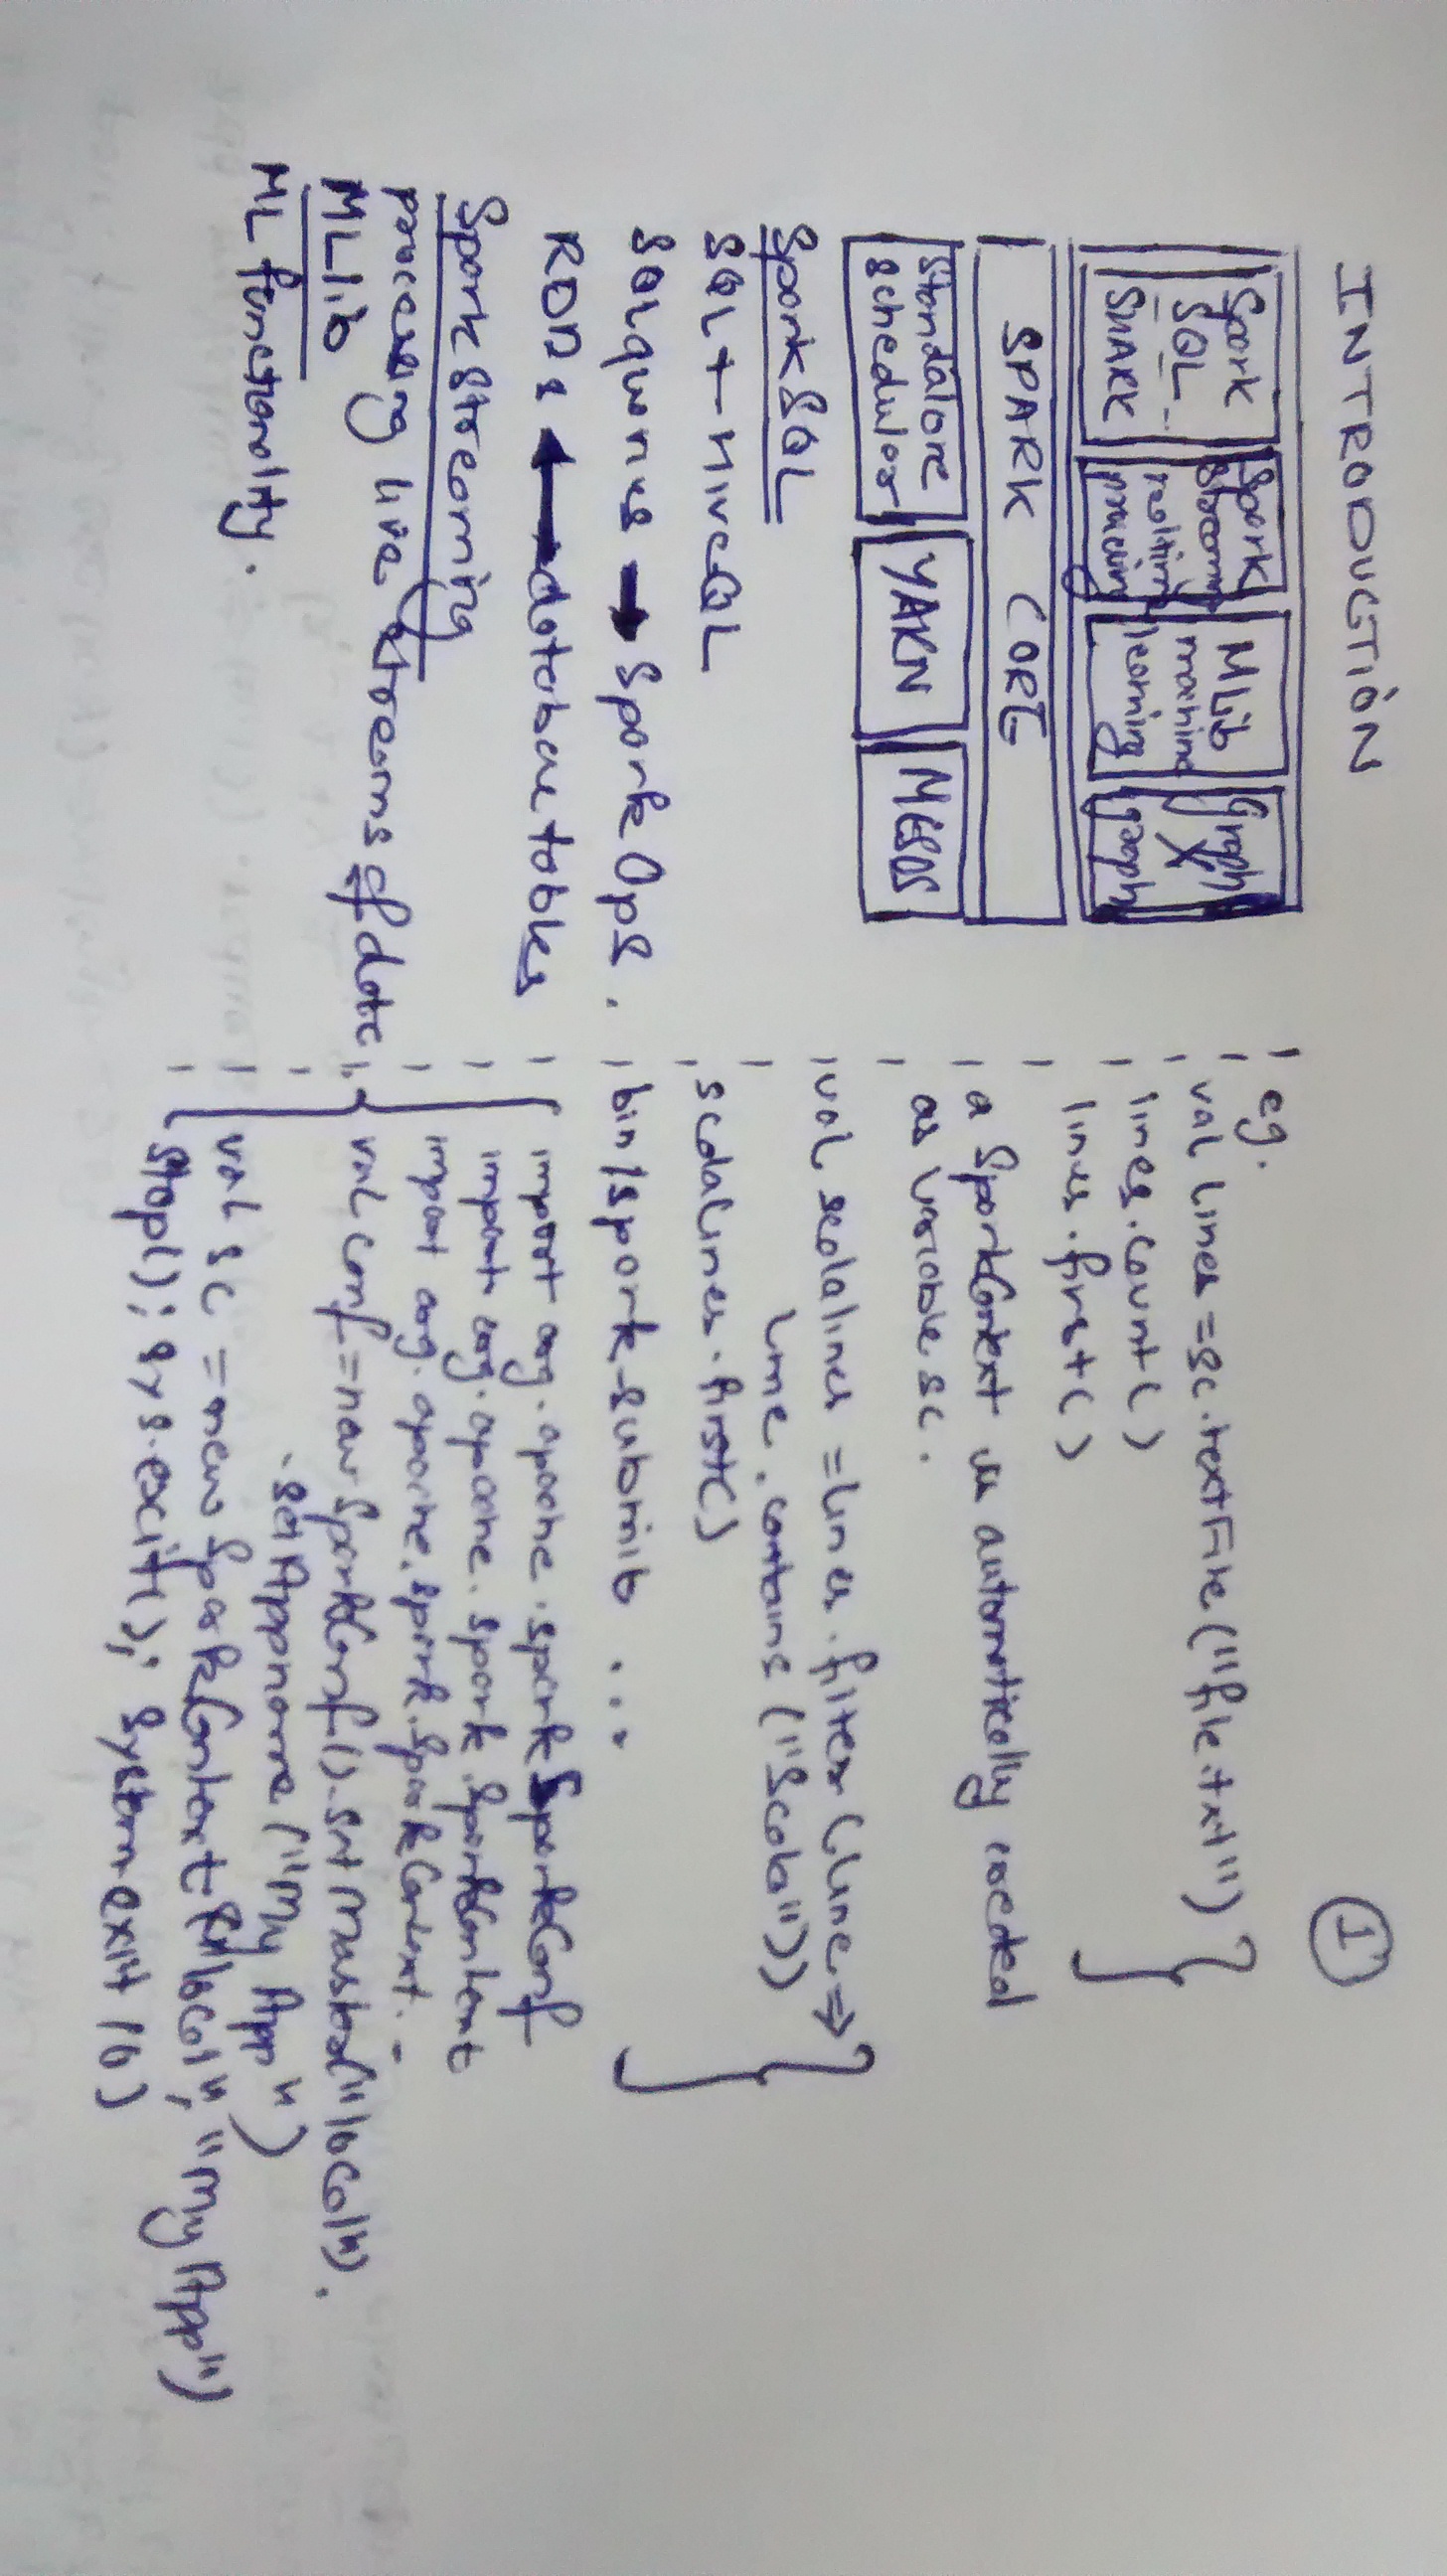 INTRODUCTION
1
Spark SQL SHARK
Spark Streaming realtime processing
MLib machine learning
Graph X graph
SPARK CORE
Standalone scheduler
YARN
MESOS
Spark SQL
SQL + HiveQL
SQL queries → Spark Ops.
RDDs ← database tables
Spark Streaming
processing live streams of data
MLlib
ML functionality.
eg.
val lines = sc.textFile("file.txt")
lines.count()
lines.first()
a SparkContext is automatically created
as variable sc.
val scalalines = lines.filter(line =>
line.contains("Scala"))
scalalines.first()
bin/spark-submib ...
import org.apache.spark.SparkConf
import org.apache.spark.SparkContext
import org.apache.spark.SparkContext._
val conf = new SparkConf().setMaster("local").
.setAppname("My App")
val sc = new SparkContext("local", "My App")
stop(); sys.exit(); System.exit(0)